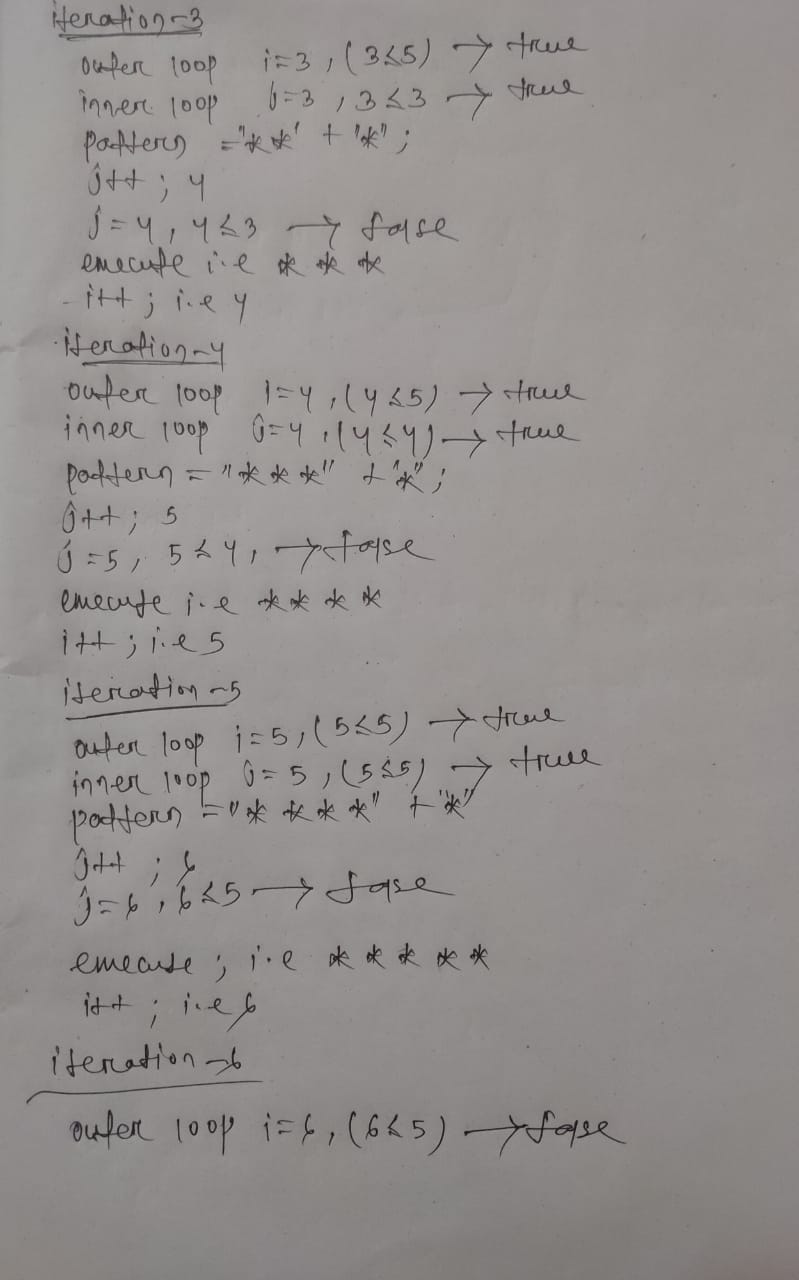 iteration-3
outer loop i=3, (3≤5) → true
inner loop j=3, 3≤3 → true
pattern = "**' + "*";
j++; 4
j=4, 4≤3 → false
execute i.e * * *
i++; i.e 4
iteration-4
outer loop i=4, (4≤5) → true
inner loop j=4, (4≤4) → true
pattern = "* * *" + "*";
j++; 5
j=5, 5≤4, → false
execute i.e * * * *
i++; i.e 5
iteration-5
outer loop i=5, (5≤5) → true
inner loop j=5, (5≤5) → true
pattern = "* * * *" + "*"
j++; 6
j=6, 6≤5 → false
execute; i.e * * * * *
i++; i.e 6
iteration-6
outer loop i=6, (6≤5) → false